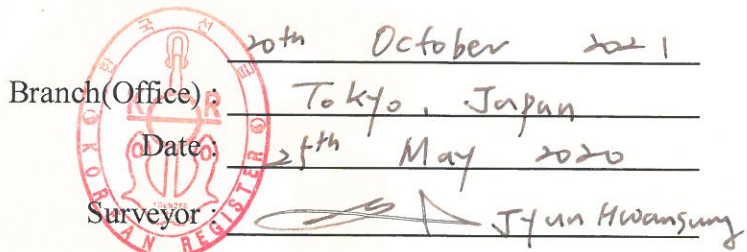 20th October 2021
Branch(Office) : Tokyo, Japan
Date : 25th May 2020
Surveyor : Jyun Hwangsung
한국선급
K R
KOREAN REGISTER
FOUNDED